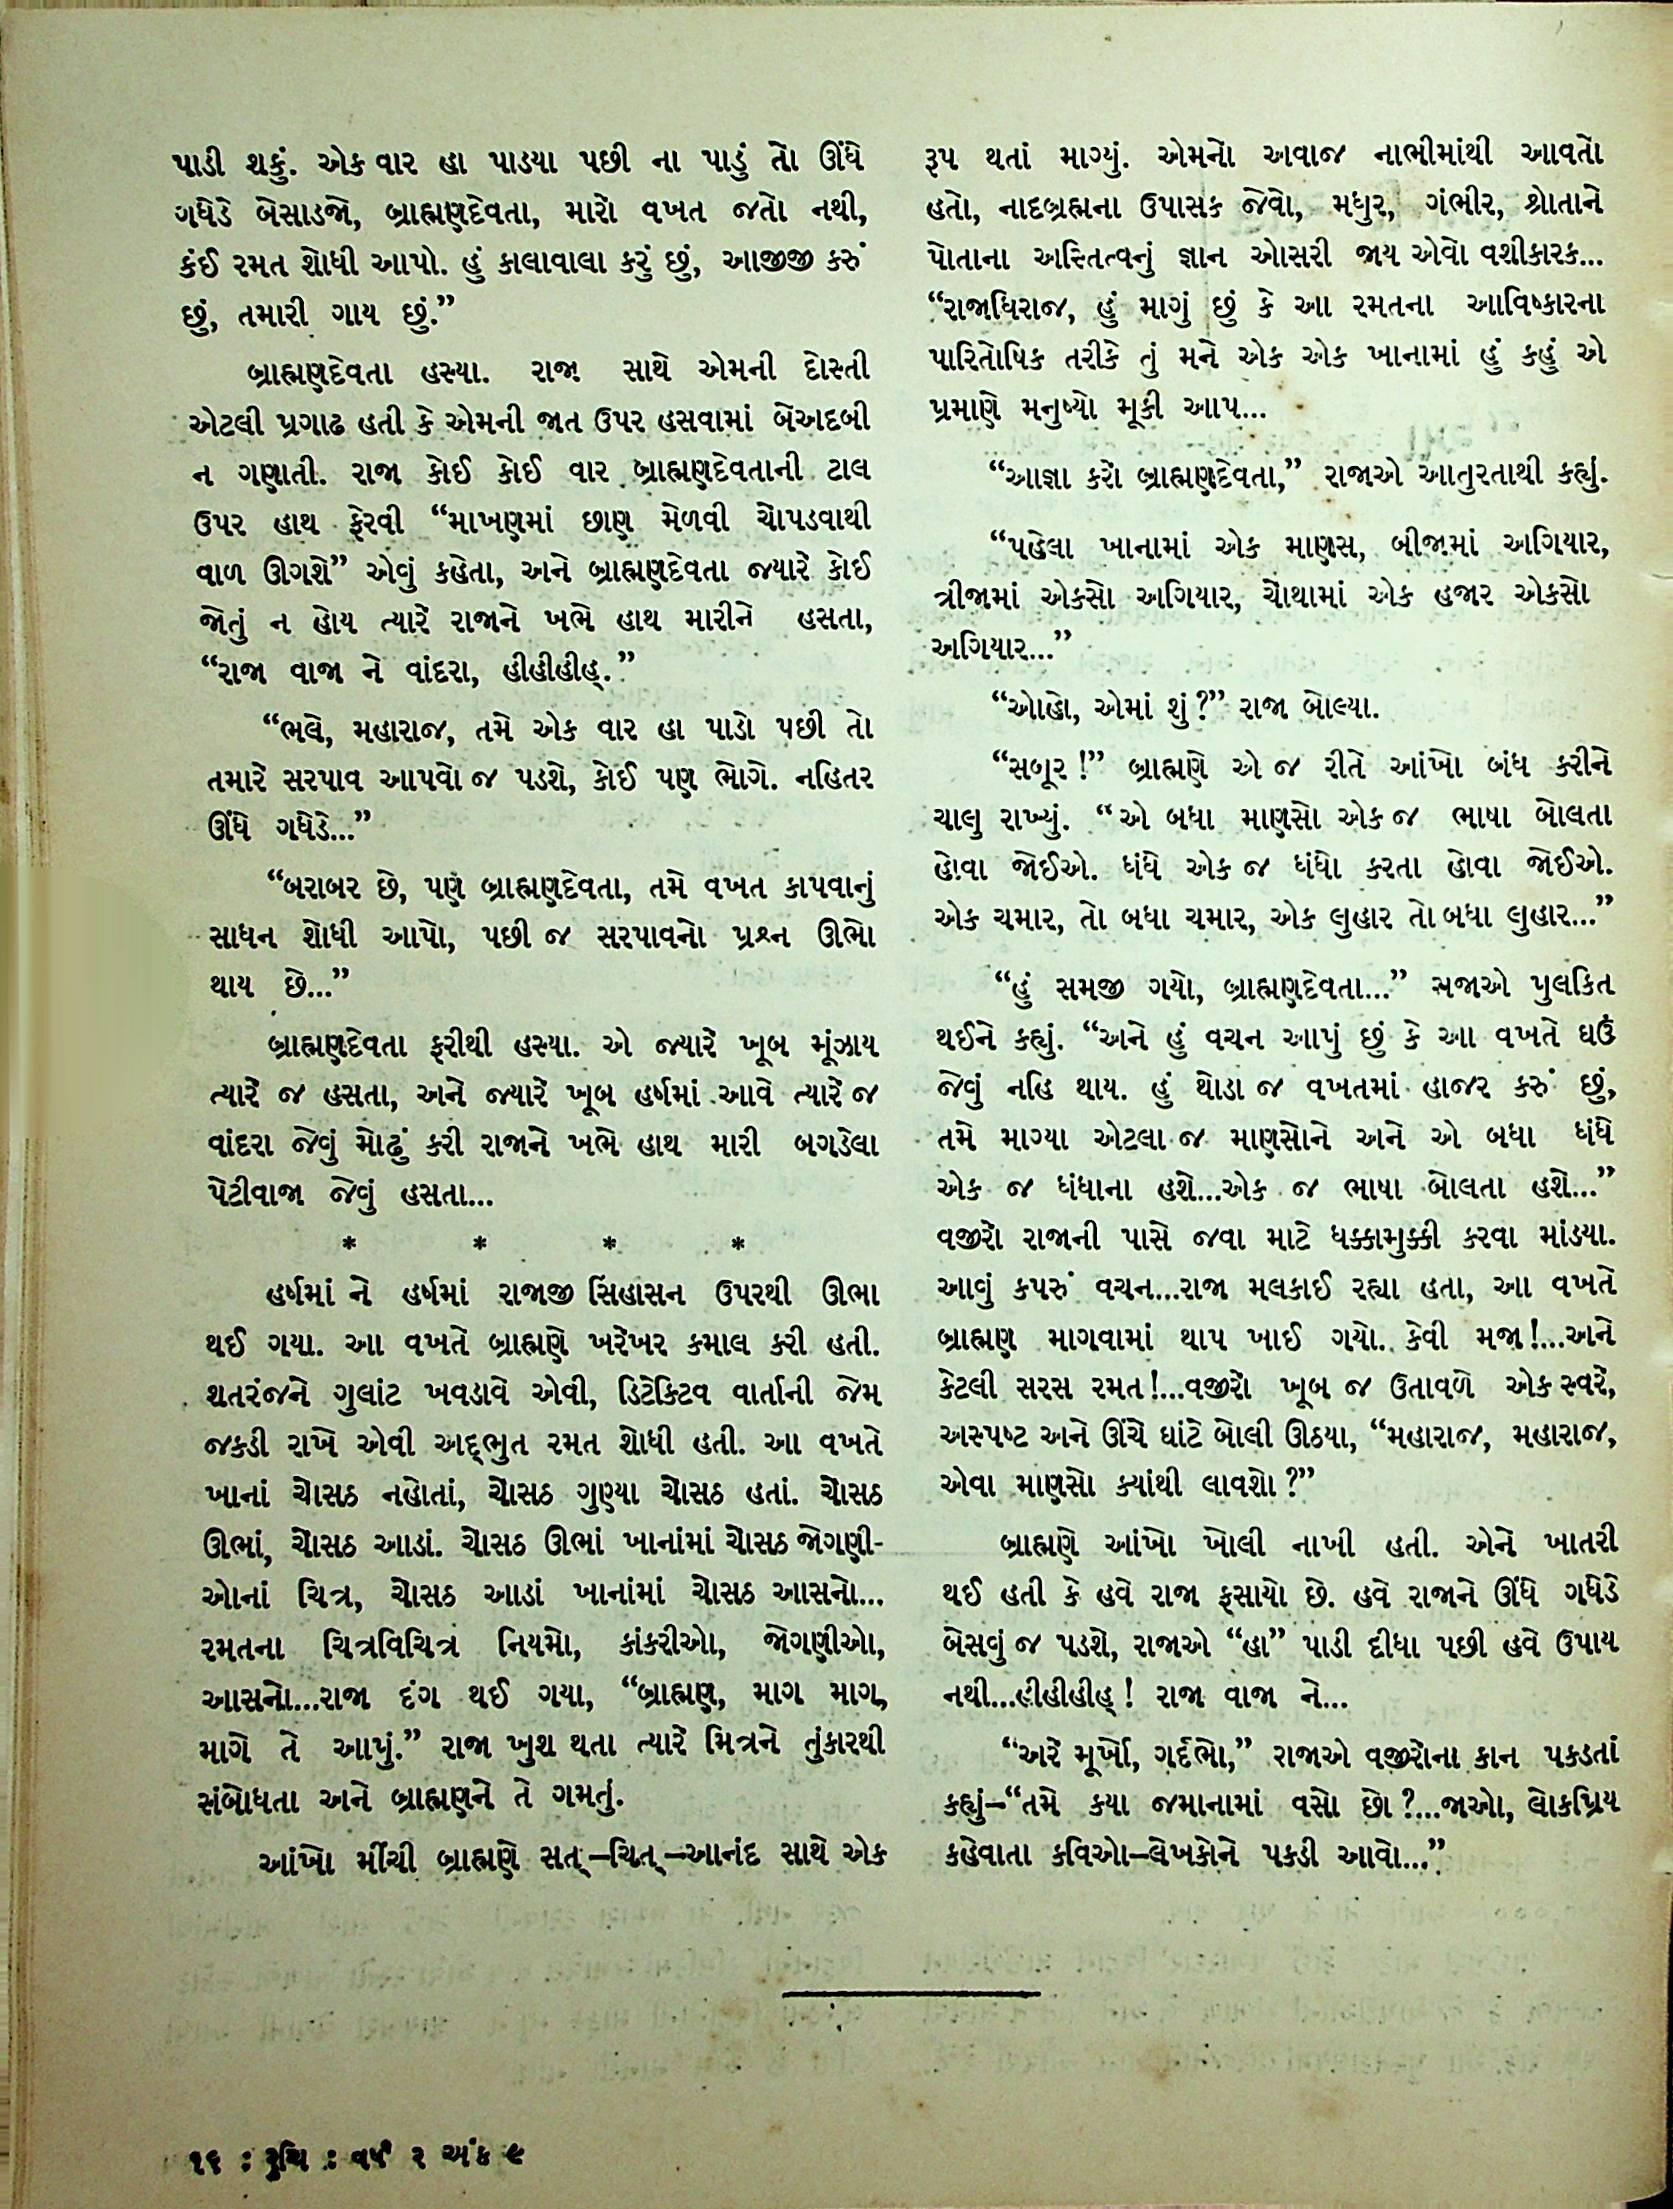 પાડી શકું. એક વાર હા પાડ્યા પછી ના પાડું તો ઊંધે
ગધેડે બેસાડજો, બ્રાહ્મણદેવતા, મારો વખત જતો નથી,
કંઈ રમત શોધી આપો. હું કાલાવાલા કરું છું, આજીજી કરું
છું, તમારી ગાય છું.”
બ્રાહ્મણદેવતા હસ્યા. રાજા સાથે એમની દોસ્તી
એટલી પ્રગાઢ હતી કે એમની જાત ઉપર હસવામાં બેઅદબી
ન ગણાતી. રાજા કોઈ કોઈ વાર બ્રાહ્મણદેવતાની ટાલ
ઉપર હાથ ફેરવી “માખણમાં છાણ મેળવી ચોપડવાથી
વાળ ઊગશે” એવું કહેતા, અને બ્રાહ્મણદેવતા જ્યારે કોઈ
જોતું ન હોય ત્યારે રાજાને ખભે હાથ મારીને હસતા,
“રાજા વાજા ને વાંદરા, હીહીહીહ્.”
“ભલે, મહારાજ, તમે એક વાર હા પાડો પછી તો
તમારે સરપાવ આપવો જ પડશે, કોઈ પણ ભોગે. નહિતર
ઊંધે ગધેડે...”
“બરાબર છે, પણ બ્રાહ્મણદેવતા, તમે વખત કાપવાનું
સાધન શોધી આપો, પછી જ સરપાવનો પ્રશ્ન ઊભો
થાય છે...”
બ્રાહ્મણદેવતા ફરીથી હસ્યા. એ જ્યારે ખૂબ મૂંઝાય
ત્યારે જ હસતા, અને જ્યારે ખૂબ હર્ષમાં આવે ત્યારે જ
વાંદરા જેવું મોઢું કરી રાજાને ખભે હાથ મારી બગડેલા
પેટીવાજા જેવું હસતા...
* * * *
હર્ષમાં ને હર્ષમાં રાજાજી સિંહાસન ઉપરથી ઊભા
થઈ ગયા. આ વખતે બ્રાહ્મણે ખરેખર કમાલ કરી હતી.
શતરંજને ગુલાંટ ખવડાવે એવી, ડિટેક્ટિવ વાર્તાની જેમ
જકડી રાખે એવી અદ્ભુત રમત શોધી હતી. આ વખતે
ખાનાં ચોસઠ નહોતાં, ચોસઠ ગુણ્યા ચોસઠ હતાં. ચોસઠ
ઊભાં, ચોસઠ આડાં. ચોસઠ ઊભાં ખાનાંમાં ચોસઠ જોગણી-
ઓનાં ચિત્ર, ચોસઠ આડાં ખાનાંમાં ચોસઠ આસનો...
રમતના ચિત્રવિચિત્ર નિયમો, કાંકરીઓ, જોગણીઓ,
આસનો...રાજા દંગ થઈ ગયા, “બ્રાહ્મણ, માગ માગ,
માગે તે આપું.” રાજા ખુશ થતા ત્યારે મિત્રને તુંકારથી
સંબોધતા અને બ્રાહ્મણને તે ગમતું.
આંખો મીંચી બ્રાહ્મણે સત્–ચિત્–આનંદ સાથે એક
રૂપ થતાં માગ્યું. એમનો અવાજ નાભીમાંથી આવતો
હતો, નાદબ્રહ્મના ઉપાસક જેવો, મધુર, ગંભીર, શ્રોતાને
પોતાના અસ્તિત્વનું જ્ઞાન ઓસરી જાય એવો વશીકારક...
“રાજાધિરાજ, હું માગું છું કે આ રમતના આવિષ્કારના
પારિતોષિક તરીકે તું મને એક એક ખાનામાં હું કહું એ
પ્રમાણે મનુષ્યો મૂકી આપ...
“આજ્ઞા કરો બ્રાહ્મણદેવતા,” રાજાએ આતુરતાથી કહ્યું.
“પહેલા ખાનામાં એક માણસ, બીજામાં અગિયાર,
ત્રીજામાં એકસો અગિયાર, ચોથામાં એક હજાર એકસો
અગિયાર...”
“ઓહો, એમાં શું?” રાજા બોલ્યા.
“સબૂર!” બ્રાહ્મણે એ જ રીતે આંખો બંધ કરીને
ચાલુ રાખ્યું. “એ બધા માણસો એક જ ભાષા બોલતા
હોવા જોઈએ. ધંધે એક જ ધંધો કરતા હોવા જોઈએ.
એક ચમાર, તો બધા ચમાર, એક લુહાર તો બધા લુહાર...”
“હું સમજી ગયો, બ્રાહ્મણદેવતા...” રાજાએ પુલકિત
થઈને કહ્યું. “અને હું વચન આપું છું કે આ વખતે ઘઉં
જેવું નહિ થાય. હું થોડા જ વખતમાં હાજર કરું છું,
તમે માગ્યા એટલા જ માણસોને અને એ બધા ધંધે
એક જ ધંધાના હશે...એક જ ભાષા બોલતા હશે...”
વજીરો રાજાની પાસે જવા માટે ધક્કામુક્કી કરવા માંડ્યા.
આવું કપરું વચન...રાજા મલકાઈ રહ્યા હતા, આ વખતે
બ્રાહ્મણ માગવામાં થાપ ખાઈ ગયો. કેવી મજા!...અને
કેટલી સરસ રમત!...વજીરો ખૂબ જ ઉતાવળે એક સ્વરે,
અસ્પષ્ટ અને ઊંચે ઘાંટે બોલી ઊઠ્યા, “મહારાજ, મહારાજ,
એવા માણસો ક્યાંથી લાવશો?”
બ્રાહ્મણે આંખો ખોલી નાખી હતી. એને ખાતરી
થઈ હતી કે હવે રાજા ફસાયો છે. હવે રાજાને ઊંધે ગધેડે
બેસવું જ પડશે, રાજાએ “હા” પાડી દીધા પછી હવે ઉપાય
નથી...હીહીહીહ્! રાજા વાજા ને...
“અરે મૂર્ખો, ગર્દભો,” રાજાએ વજીરોના કાન પકડતાં
કહ્યું–“તમે કયા જમાનામાં વસો છો?...જાઓ, લોકપ્રિય
કહેવાતા કવિઓ–લેખકોને પકડી આવો...”
૧૬ : રુચિ : વર્ષ ૨ અંક ૯